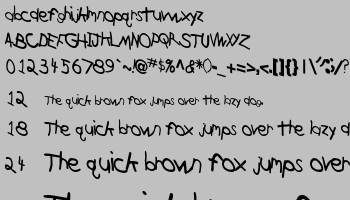 abcdefghijklmnopqrstuvwxyz
ABCDEFGHIJKLMNOPQRSTUVWXYZ
0123456789`~!@#$%^&*()-_+=>,<.[]{}|\'";:/?
12 The quick brown fox jumps over the lazy dog.
18 The quick brown fox jumps over the lazy d
24 The quick brown fox jumps over